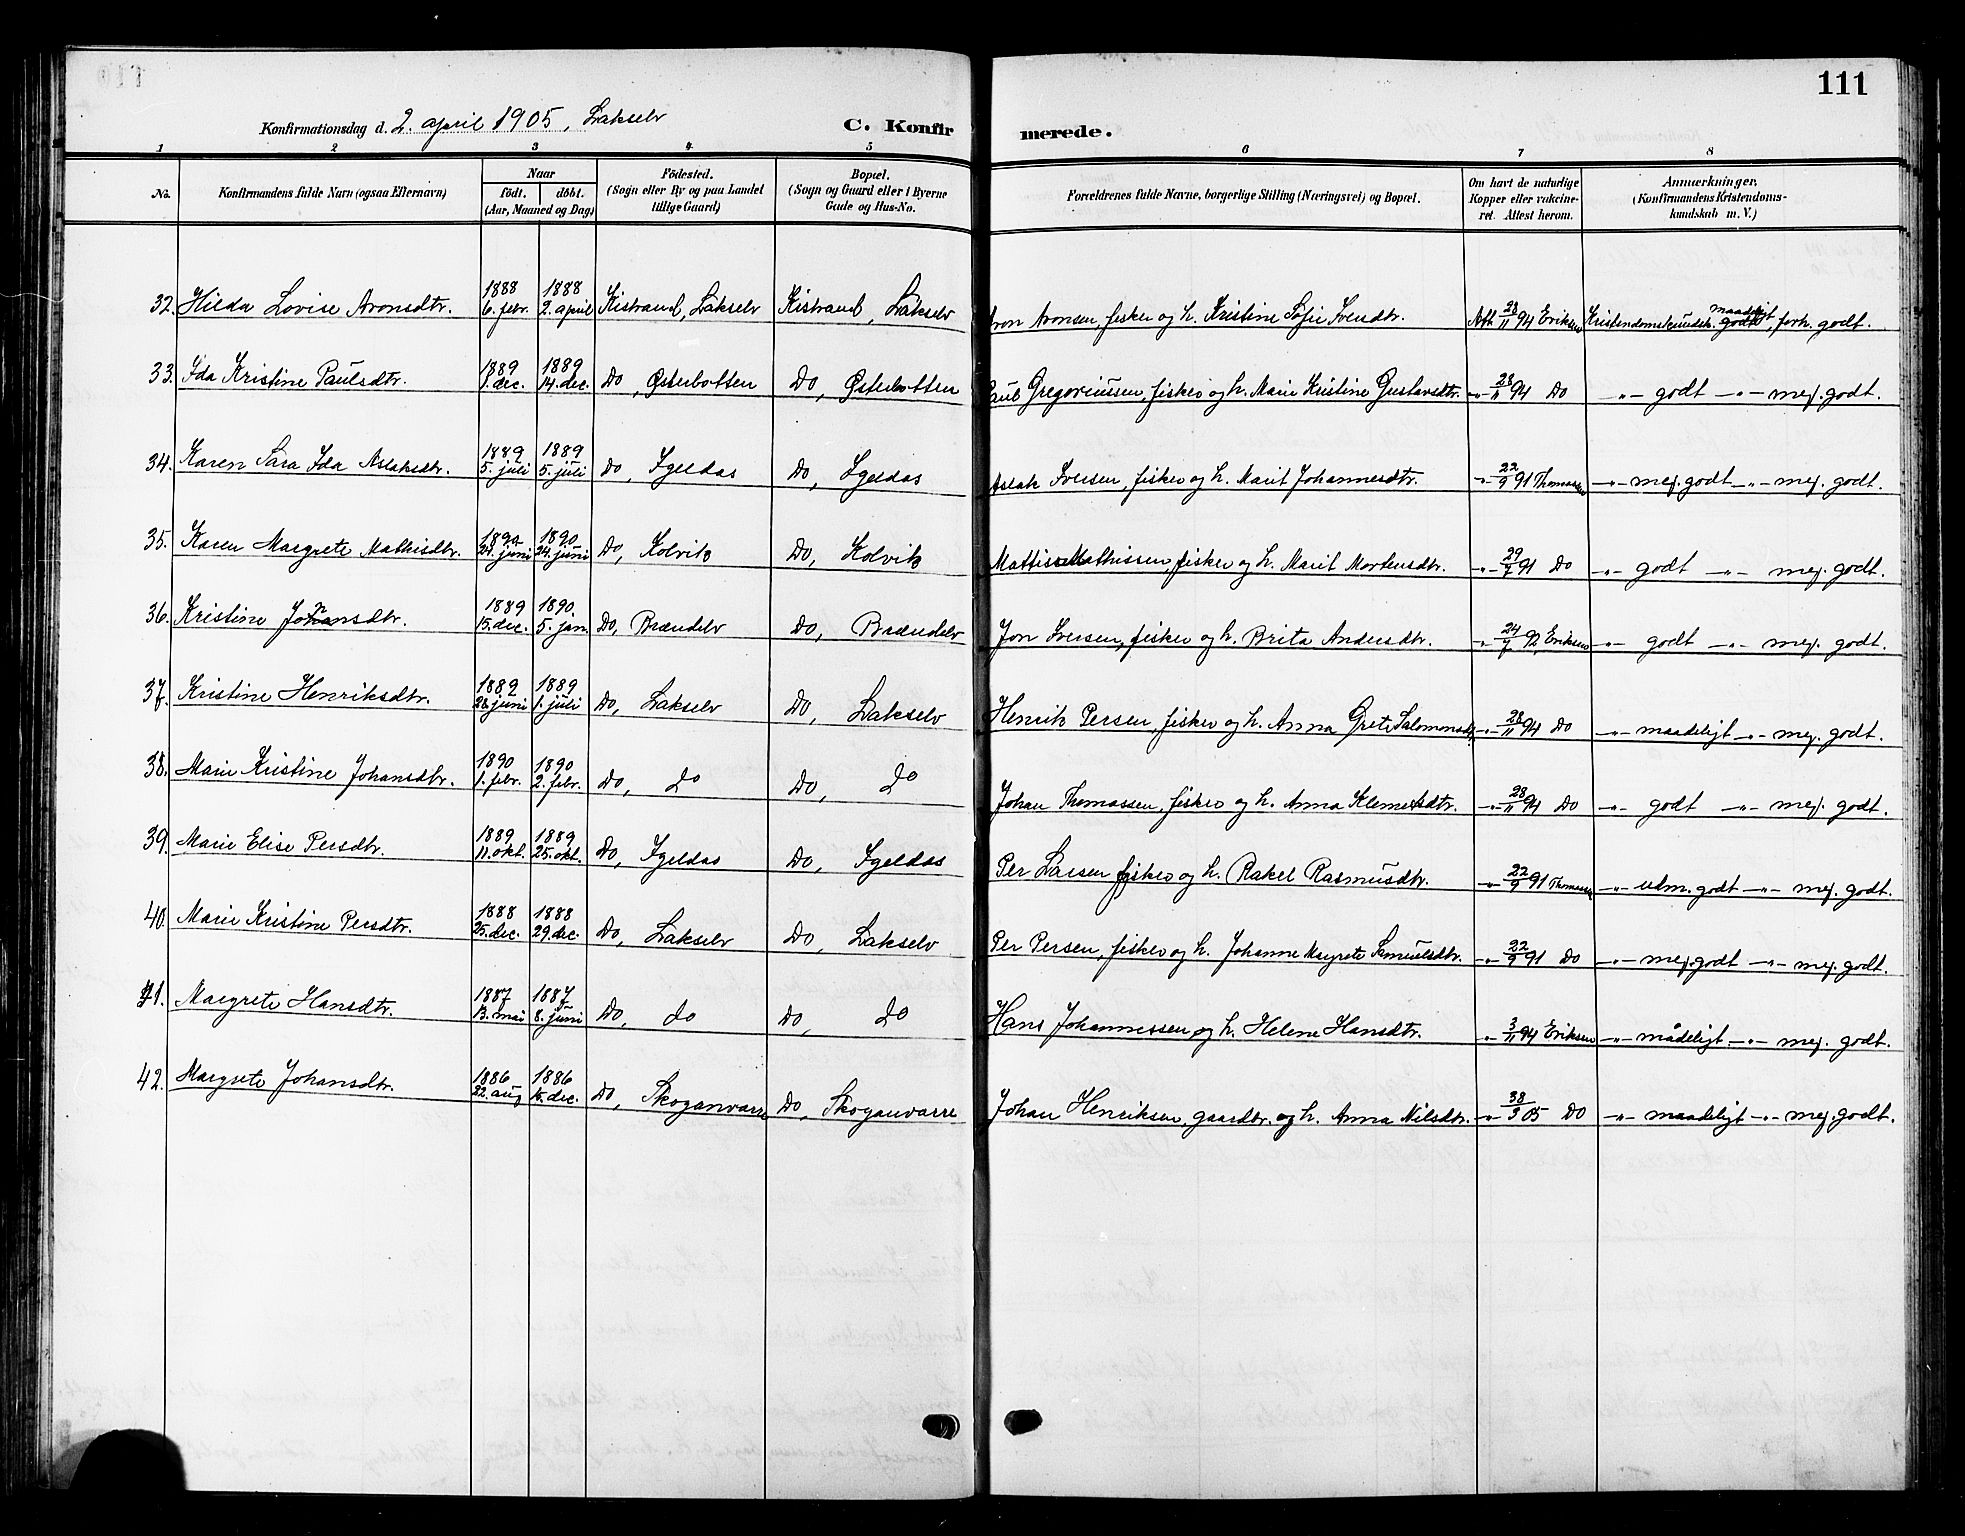 111
Konfirmationsdag d. 2. april 1905, Lakselv
C. Konfirmerede.
1 2 3 4 5 6 7 8
No. Konfirmandens fulde Navn (ogsaa Efternavn) Naar født. døbt. (Aar, Maaned og Dag) Fødested. (Sogn eller By og paa Landet tillige Gaard) Bopæl. (Sogn og Gaard eller i Byerne Gade og Hus-No. Forældrenes fulde Navne, borgerlige Stilling (Næringsvei) og Bopæl. Om havt de naturlige Kopper eller vakcineret. Attest herom. Anmærkninger. (Konfirmandens Kristendomskundskab m. V.)
32. Hilda Lovise Aronsdtr. 1888 6. febr. 1888 2. april Kistrand, Lakselv Kistrand, Lakselv Aron Aronsen, fisker og h. Kristine Sofie Iversdtr. Att. 28/11 94 Eriksen Kristendomskundsk. maadeligt, forh. godt.
33. Ida Kristine Paulsdtr. 1889 1. dec. 1889 14. dec. Do, Østerbotten Do, Østerbotten Paul Gregoriussen, fisker og h. Marie Kristine Gustavsdtr. -"- 28/11 94 Do -"- godt -"- meg. godt.
34. Karen Sara Ida Aslaksdtr. 1889 5. juli 1889 5. juli Do, Igeldas Do, Igeldas Aslak Iversen, fisker og h. Marit Johannesdtr. -"- 22/9 91 Thomassen -"- meg. godt -"- meg. godt.
35. Karen Margrete Mathisdtr. 1890 24. juni 1890 24. juni Do, Kolvik Do, Kolvik Mattis Mathissen, fisker og h. Marit Mortensdtr. -"- 29/7 91 Do -"- godt -"- meg. godt.
36. Kristine Jonsdtr. 1889 15. dec. 1890 5. jan. Do, Brændelv Do, Brændelv Jon Iversen, fisker og h. Brita Andersdtr. -"- 24/7 92, Eriksen -"- godt -"- meg. godt.
37. Kristine Henriksdtr. 1889 28. juni 1889 1. juli Do, Lakselv Do, Lakselv Henrik Persen, fisker og h. Anna Grete Salomonsdtr. -"- 28/11 94 Do -"- maadeligt -"- meg. godt.
38. Marie Kristine Johansdtr. 1890 1. febr. 1890 2. febr. Do, do Do, do Johan Thomassen, fisker og h. Anna Klemetsdtr. -"- 28/11 94 Do -"- godt -"- meg. godt.
39. Marie Elise Persdtr. 1889 11. okt. 1889 25. okt. Do, Igeldas Do, Igeldas Per Larsen fisker og h. Rakel Rasmusdtr. -"- 22/9 91 Thomassen -"- udm. godt -"- meg. godt.
40. Marie Kristine Persdtr. 1888 25. dec. 1888 29. dec. Do, Lakselv Do, Lakselv Per Persen, fisker og h. Johanne Margrete Samuelsdtr. -"- 22/9 91 Do -"- meg. godt -"- meg. godt.
41. Margrete Hansdtr. 1887 13. mai 1887 8. juni Do, do Do, do Hans Johannessen og h. Helene Hansdtr. -"- 3/11 94 Eriksen -"- mådeligt -"- meg. godt.
42. Margrete Johansdtr. 1886 22. aug 1886 15. dec. Do, Skoganvarre Do, Skoganvarre Johan Henriksen, gaardbr. og h. Anna Nilsdtr. -"- 38/3 05 Do -"- maadeligt -"- meg. godt.